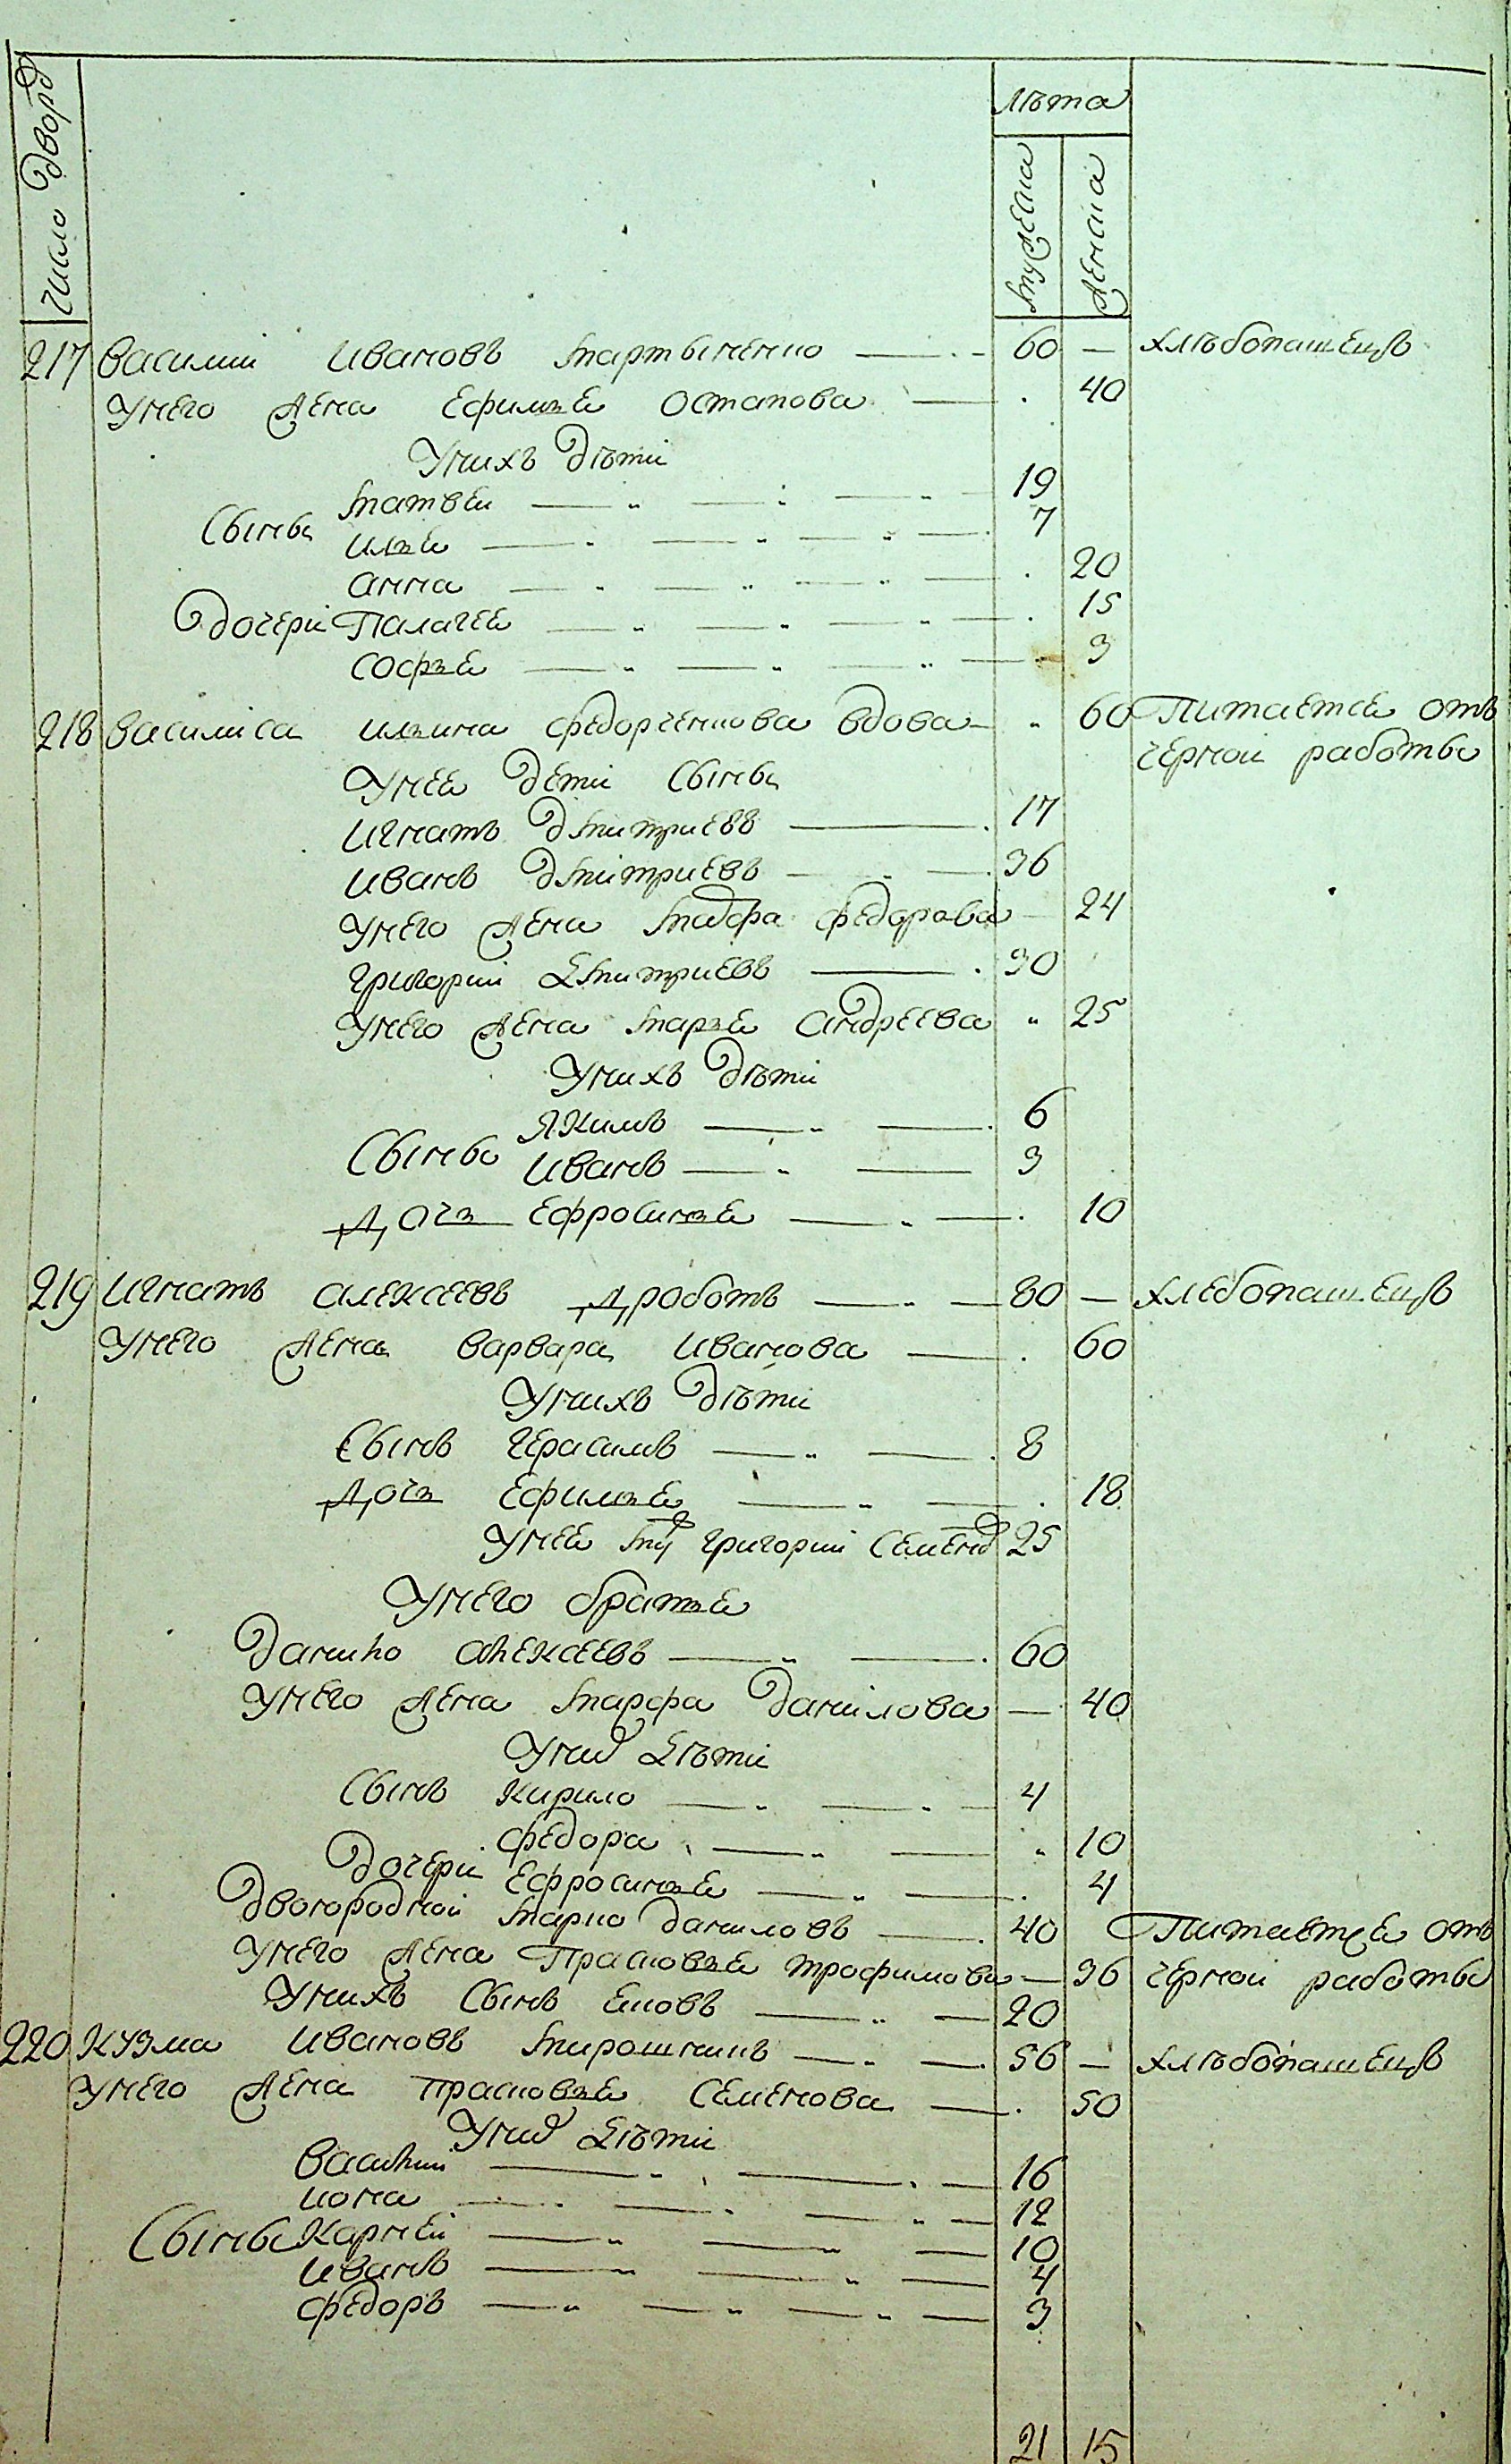 Число дворѡ
лѣта
мужеска
женска
217 василии Ивановъ мартыненко 60 — хлѣбопашецъ
Унего жена Ефимъя Остапова 40
Унихъ дѣти
Сыны матвеи 19
илъя 7
анна 20
дочери Палагея 15
софъя 3
218 василиса илъина федорченкова вдова 60 Питается отъ
черной работы
Унея дети Сыны
Игнатъ дмитриевъ 17
Иванъ дмитриевъ 36
Унего жена марфа федорова 24
григории дмитриевъ 30
Унего жена маръя андреева 25
Унихъ дѣти
Сыны Якимъ 6
Иванъ 3
дочъ Ефросинъя 10
219 Игнатъ алексеевъ дроботъ 80 — хлебопашецъ
Унего жена варвара Иванова 60
Унихъ дѣти
Сынъ герасимъ 8
дочъ Ефимъя 18
Унея му григории Семено 25
Унего братъя
данило алексеевъ 60
Унего жена марфа данилова — 40
Уних дѣти
Сынъ Кирило 4
федора 10
дочери Ефросинъя 4
двоюродной марко даниловъ 40 Питаетца отъ
Унего жена Прасковъя трофимова — 36 черной работы
Унихъ Сынъ яковъ 20
220 Кузма Ивановъ мирошникъ 56 — хлѣбопашецъ
Унего жена прасковъя Семенова 50
Уних дѣти
василии 16
иона 12
Сыны Карнеи 10
Иванъ 4
федоръ 3
21 15